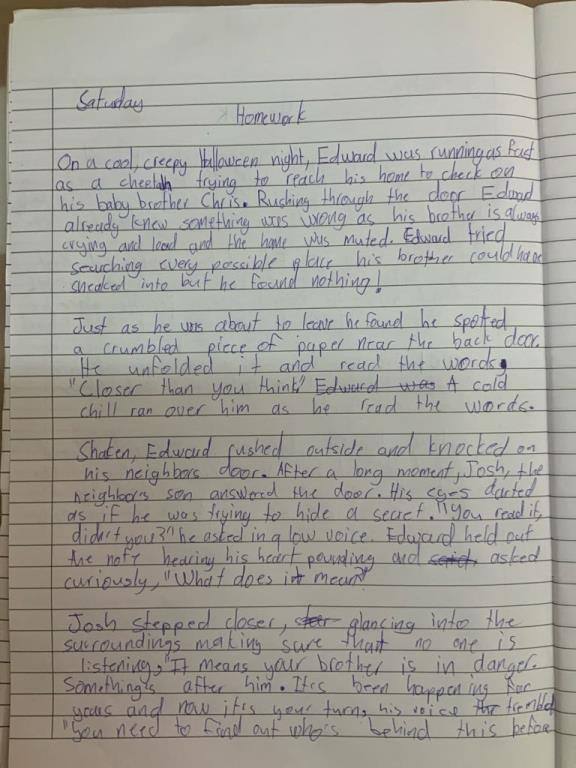 Saturday
Homework
On a cool, creepy Halloween night, Edward was running as fast
as a cheetah trying to reach his home to check on
his baby brother Chris. Rushing through the door Edward
already knew something was wrong as his brother is always
crying and loud and the home was muted. Edward tried
searching every possible place his brother could have
sneaked into but he found nothing!
Just as he was about to leave he found he spotted
a crumbled piece of paper near the back door.
He unfolded it and read the words.
"Closer than you think" Edward was A cold
chill ran over him as he read the words.
Shaken, Edward rushed outside and knocked on
his neighbors door. After a long moment, Josh, the
neighbors son answerd the door. His eyes darted
as if he was trying to hide a secret. "You read it,
didn't you?" he asked in a low voice. Edward held out
the note hearing his heart pounding and said, asked
curiously, "What does it mean?"
Josh stepped closer, glancing into the
surroundings making sure that no one is
listening, "It means your brother is in danger.
Something's after him. It's been happening for
years and now it's your turn, his voice trembled
"You need to find out who's behind this before